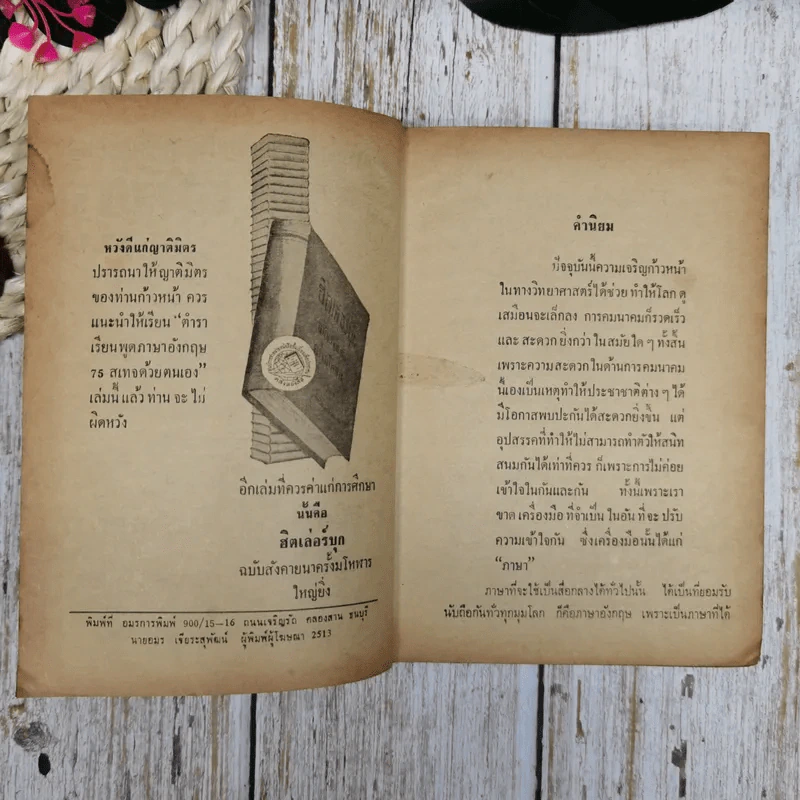 หวังดีแก่ญาติมิตร
ปรารถนาให้ญาติมิตร
ของท่านก้าวหน้า ควร
แนะนำให้เรียน "ตำรา
เรียนพูดภาษาอังกฤษ
75 สเทจด้วยตนเอง"
เล่มนี้ แล้ว ท่าน จะ ไม่
ผิดหวัง
อีกเล่มที่ควรค่าแก่การศึกษา
นั้นคือ
ฮิตเล่อร์บุก
ฉบับสังคายนาครั้งมโหฬาร
ใหญ่ยิ่ง
พิมพ์ที่ อมรการพิมพ์ 900/15—16 ถนนเจริญรัถ คลองสาน ธนบุรี
นายอมร เจียระสุพัฒน์ ผู้พิมพ์ผู้โฆษณา 2513
คำนิยม
ปัจจุบันนี้ความเจริญก้าวหน้า
ในทางวิทยาศาสตร์ได้ช่วย ทำให้โลก ดู
เสมือนจะเล็กลง การคมนาคมก็รวดเร็ว
และ สะดวก ยิ่งกว่า ใน สมัยใด ๆ ทั้งสิ้น
เพราะความสะดวกในด้านการคมนาคม
นี้เองเป็นเหตุทำให้ประชาชาติต่าง ๆ ได้
มีโอกาสพบปะกันได้สะดวกยิ่งขึ้น แต่
อุปสรรคที่ทำให้ไม่สามารถทำตัวให้สนิท
สนมกันได้เท่าที่ควร ก็เพราะการไม่ค่อย
เข้าใจในกันและกัน ทั้งนี้เพราะเรา
ขาด เครื่องมือ ที่จำเป็น ในอัน ที่ จะ ปรับ
ความเข้าใจกัน ซึ่งเครื่องมือนั้นได้แก่
"ภาษา"
ภาษาที่จะใช้เป็นสื่อกลางได้ทั่วไปนั้น ได้เป็นที่ยอมรับ
นับถือกันทั่วทุกมุมโลก ก็คือภาษาอังกฤษ เพราะเป็นภาษาที่ได้